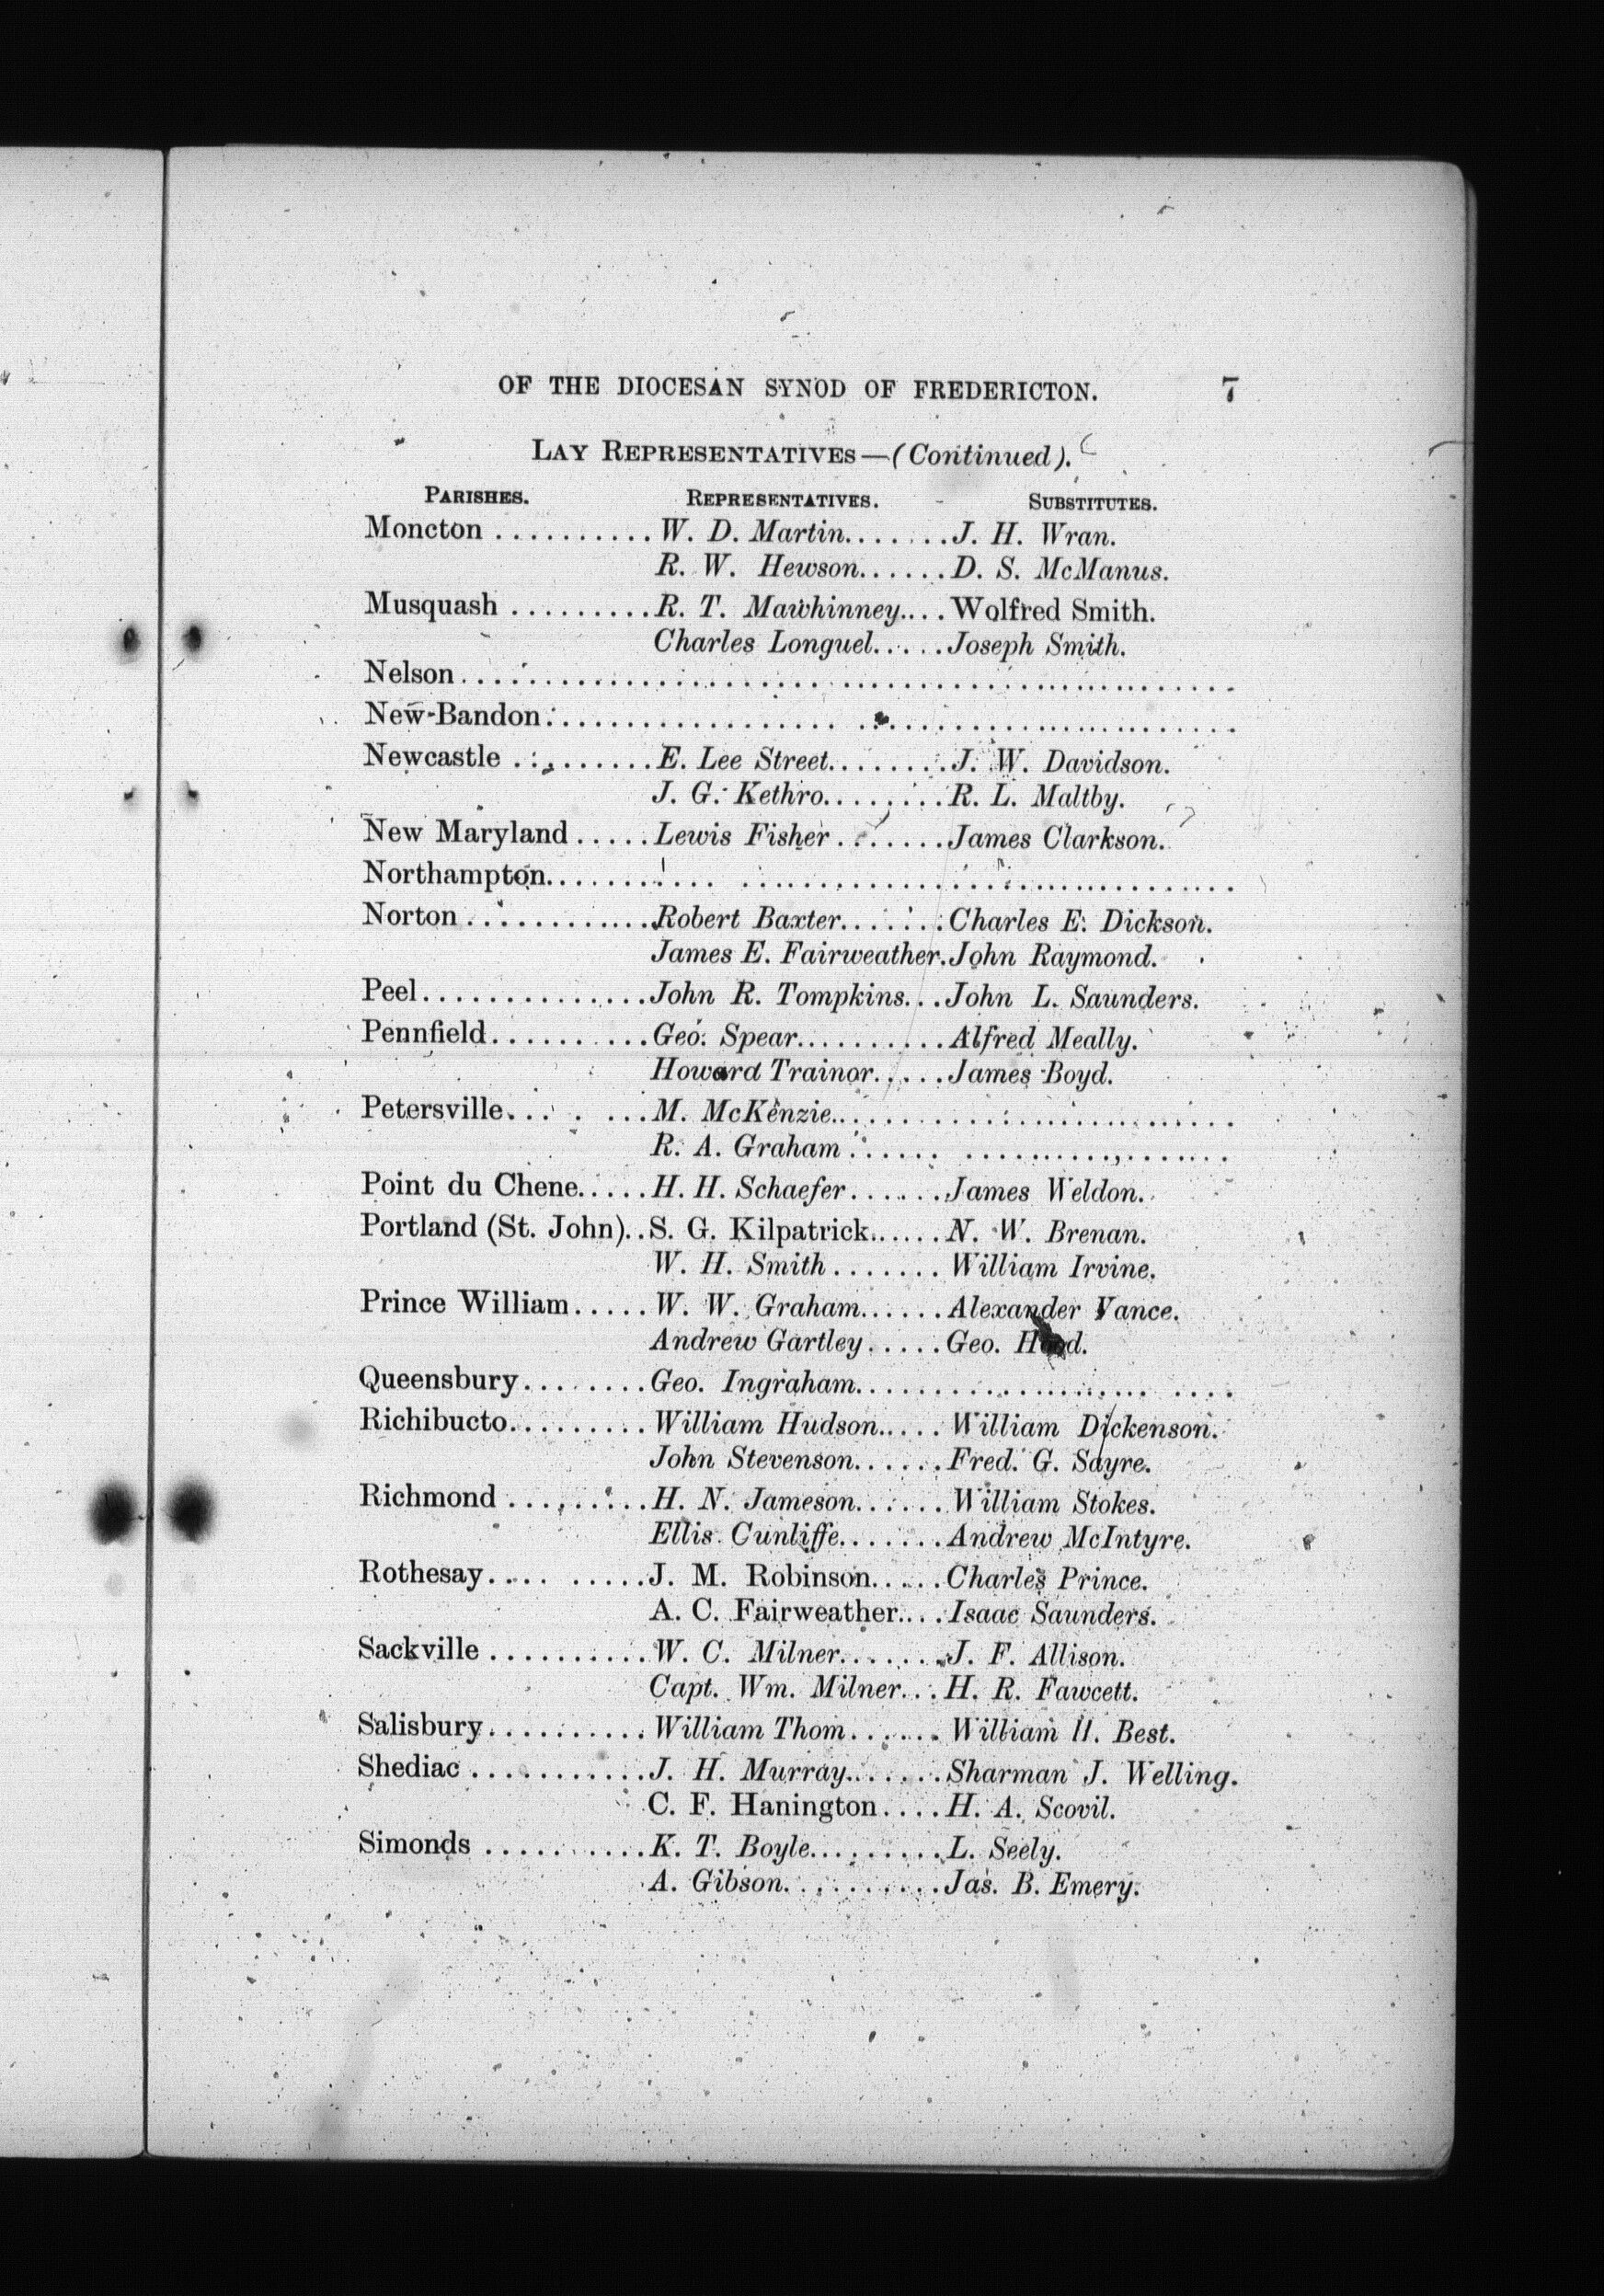 OF THE DIOCESAN SYNOD OF FREDERICTON. 7
LAY REPRESENTATIVES—(Continued).
PARISHES. REPRESENTATIVES. SUBSTITUTES.
Moncton..........W. D. Martin.......J. H. Wran.
R. W. Hewson......D. S. McManus.
Musquash.........R. T. Mawhinney....Wolfred Smith.
Charles Longuel.....Joseph Smith.
Nelson..........................................
New-Bandon......................................
Newcastle.........E. Lee Street........J. W. Davidson.
J. G. Kethro........R. L. Maltby.
New Maryland.....Lewis Fisher.......James Clarkson.
Northampton.....................................
Norton............Robert Baxter.......Charles E. Dickson.
James E. Fairweather.John Raymond.
Peel..............John R. Tompkins...John L. Saunders.
Pennfield..........Geo. Spear..........Alfred Meally.
Howard Trainor.....James Boyd.
Petersville........M. McKenzie..........................
R. A. Graham..........................
Point du Chene.....H. H. Schaefer......James Weldon.
Portland (St. John)..S. G. Kilpatrick......N. W. Brenan.
W. H. Smith.......William Irvine.
Prince William.....W. W. Graham......Alexander Vance.
Andrew Gartley.....Geo. Hood.
Queensbury........Geo. Ingraham.........................
Richibucto.........William Hudson.....William Dickenson.
John Stevenson......Fred. G. Sayre.
Richmond.........H. N. Jameson......William Stokes.
Ellis Cunliffe.......Andrew McIntyre.
Rothesay.........J. M. Robinson.....Charles Prince.
A. C. Fairweather....Isaac Saunders.
Sackville..........W. C. Milner.......J. F. Allison.
Capt. Wm. Milner...H. R. Fawcett.
Salisbury..........William Thom......William H. Best.
Shediac...........J. H. Murray.......Sharman J. Welling.
C. F. Hanington....H. A. Scovil.
Simonds..........K. T. Boyle.........L. Seely.
A. Gibson..........Jas. B. Emery.